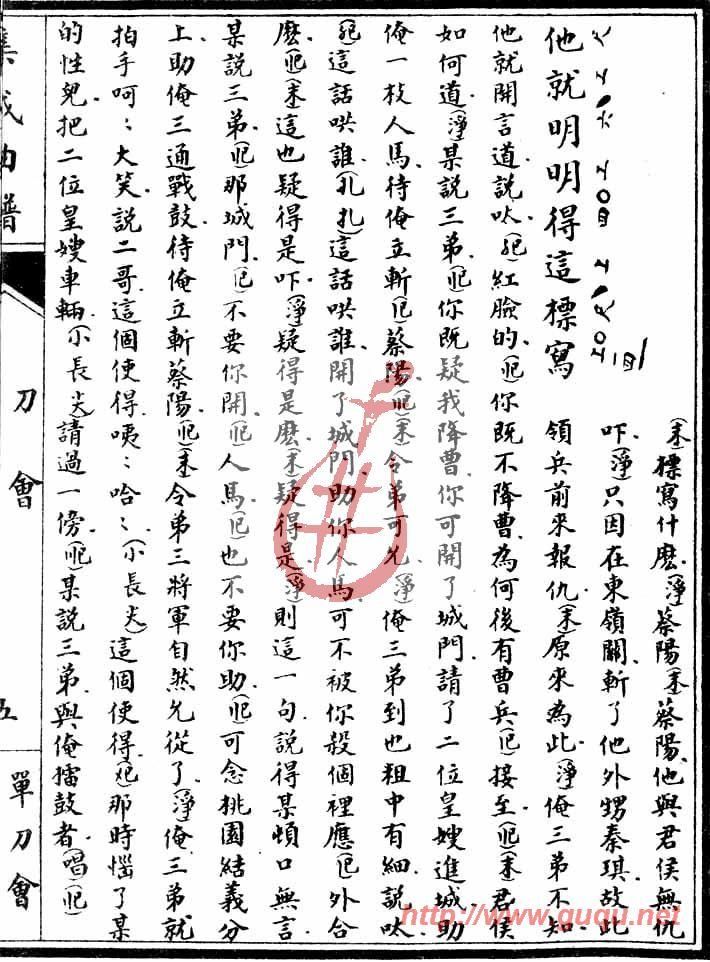 他就明明得這標寫
(末)標寫什麽.(淨)蔡陽.(末)蔡陽.他與君侯無仇
吓.(淨)只因在東嶺關.斬了他外甥秦琪.故此
領兵前來報仇.(末)原來為此.(淨)俺三弟不知.
他就開言道.說呔.紅臉的.你既不降曹.為何後有曹兵接至.(末)君侯
如何道.(淨)某說三弟.你既疑我降曹.你可開了城門.請了二位皇嫂進城.助
俺一枝人馬.待俺立斬蔡陽.(末)令弟可允.(淨)俺三弟到也粗中有細.說呔.
這話哄誰.(扎扎)這話哄誰.開了城門.助你人馬.可不被你殺個裡應外合
麽.(末)這也疑得是吓.(淨)疑得是麽.(末)疑得是.(淨)則這一句.說得某頓口無言.
某說三弟.那城門.不要你開.人馬.也不要你助.可念桃園結義分
上.助俺三通戰鼓.待俺立斬蔡陽.(末)令弟三將軍自然允從了.(淨)俺三弟就
拍手呵:大笑.說二哥.這個使得.咦:哈:.(小長尖)這個使得.那時惱了某
的性兒.把二位皇嫂車輛.(小長尖)請過一傍.某說三弟.與俺擂鼓者.(唱)
集成曲譜
刀會
五
單刀會
http://www.guqu.net